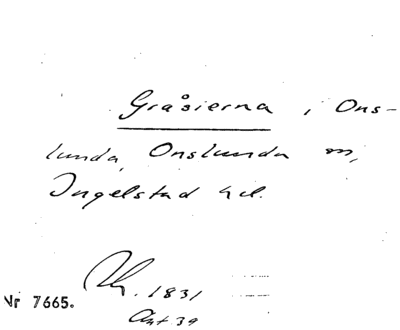 Gråsierna i Ons-
lunda, Onslunda sn,
Ingelstad hd.
Nr 7665.
1831
Akt 39